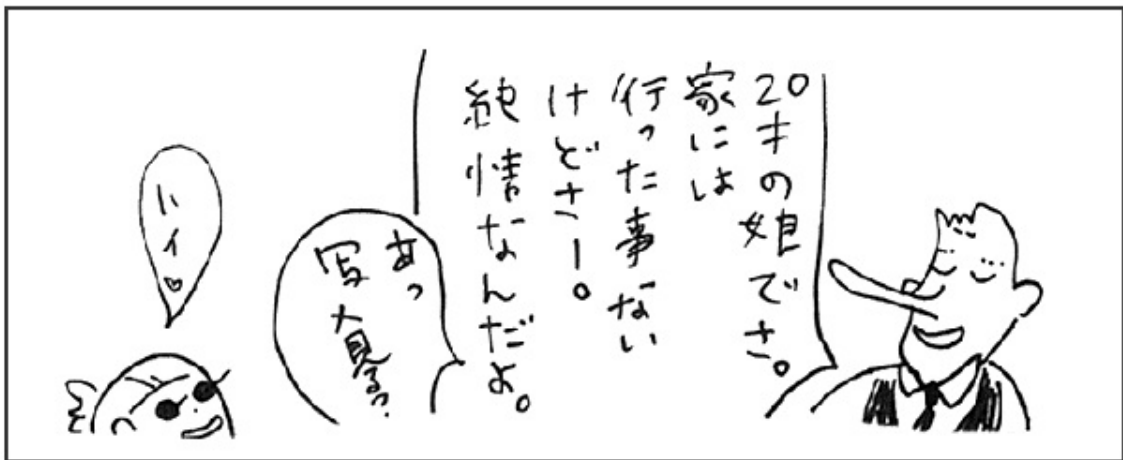 20才の娘でさ。
家には
行った事ない
けどさー。
純情なんだよ。
あっ
写真見る?
ハイ♡